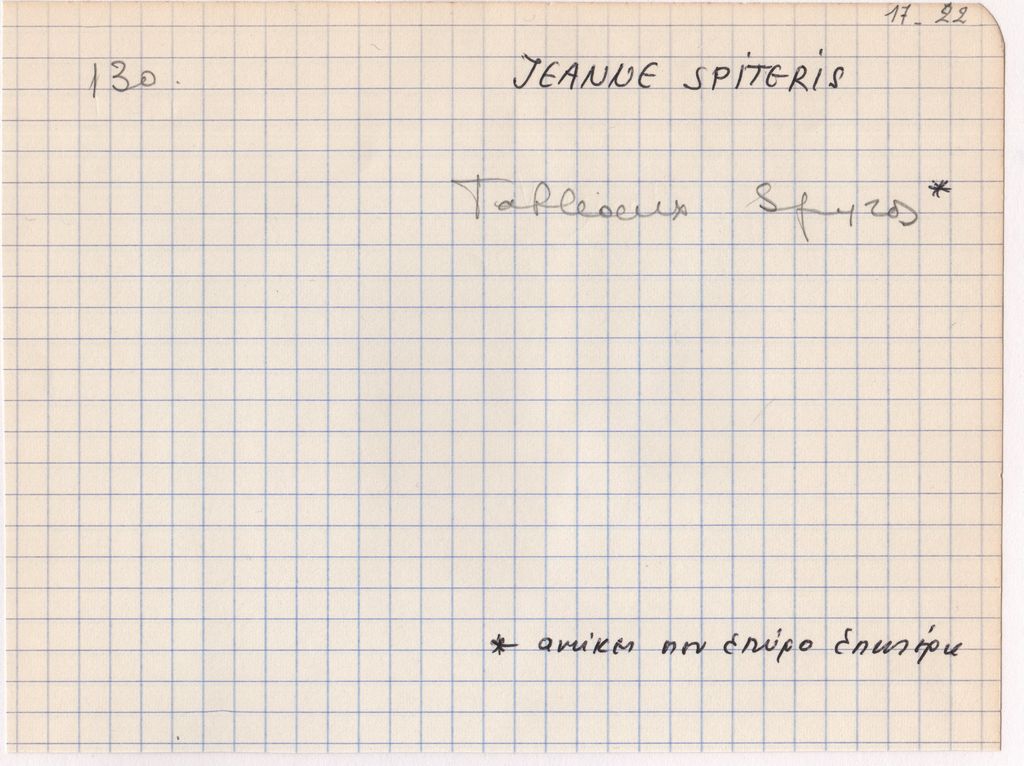 17-22
130.
JEANNE SPITERIS
Tableaux Spyros *
* ανήκει στον Σπύρο Σπιτέρη